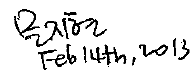 문지현
Feb 14th, 2013